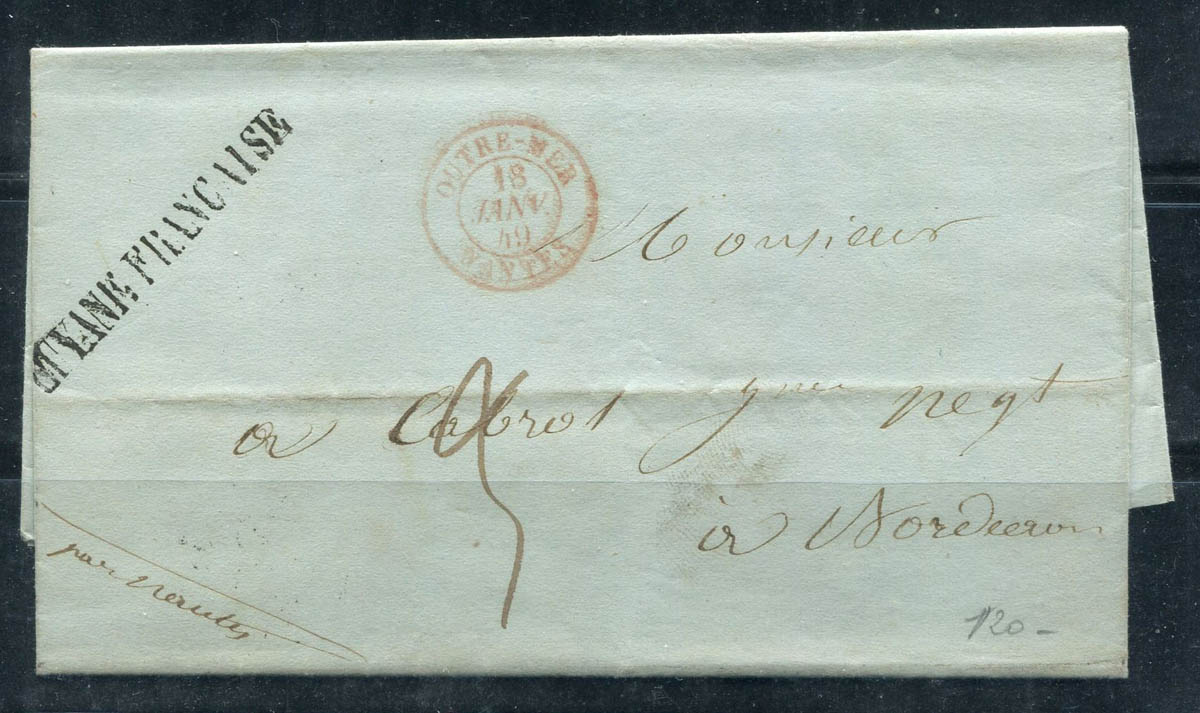 GUYANE FRANÇAISE
OUTRE-MER
18
JANV.
49
NANTES
Monsieur
a Cabrol jne negt
à Bordeaux
par Nantes
120 -